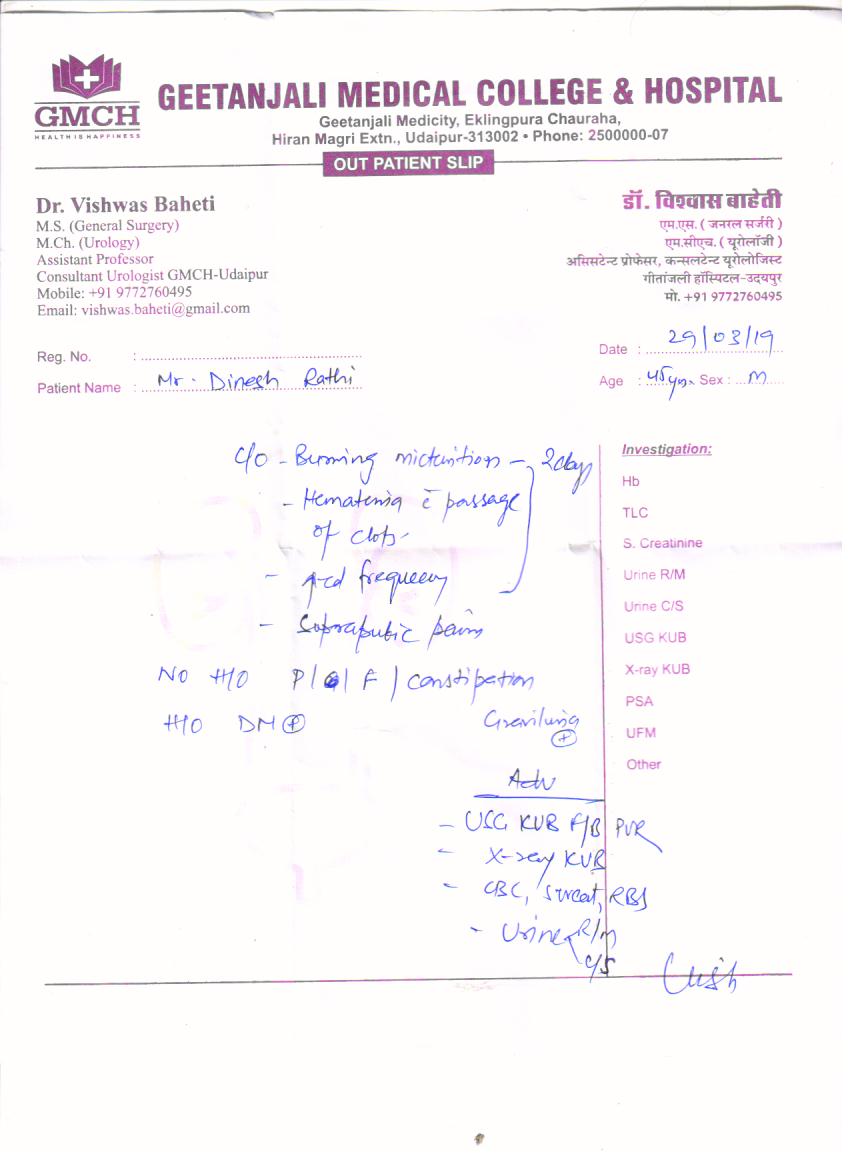 GMCH
HEALTH IS HAPPINESS
GEETANJALI MEDICAL COLLEGE & HOSPITAL
Geetanjali Medicity, Eklingpura Chauraha,
Hiran Magri Extn., Udaipur-313002 • Phone: 2500000-07
OUT PATIENT SLIP
Dr. Vishwas Baheti
M.S. (General Surgery)
M.Ch. (Urology)
Assistant Professor
Consultant Urologist GMCH-Udaipur
Mobile: +91 9772760495
Email: vishwas.baheti@gmail.com
डॉ. विश्वास बाहेती
एम.एस. ( जनरल सर्जरी )
एम.सीएच. ( यूरोलॉजी )
असिसटेन्ट प्रोफेसर, कन्सलटेन्ट यूरोलोजिस्ट
गीतांजली हॉस्पिटल-उदयपुर
मो. +91 9772760495
Reg. No. :
Date : 29/03/19
Patient Name : Mr. Dinesh Rathi
Age : 45 yrs. Sex : M
C/O - Burning micturition - 2 days
- Hematuria c̄ passage
of clots
- frequency
- Suprapubic pain
No H/O P/ /F/constipation
H/O DM ⊕
⊕
Adv
- USG KUB F/B PVR
- X-ray KUB
- CBC, S.creat, RBS
- Urine R/M
C/S
Investigation:
Hb
TLC
S. Creatinine
Urine R/M
Urine C/S
USG KUB
X-ray KUB
PSA
UFM
Other